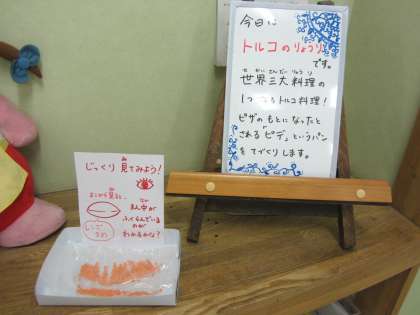 今日は
トルコのりょうり
です。
せかいさんだいりょうり
世界三大料理の
1つ トルコ料理!
ピザのもとになったと
される「ピデ」というパン
をてづくりします。
じっくり見てみよう!
よこから見ると…
まん中が
ふくらんでいる
のが
わかるかな?